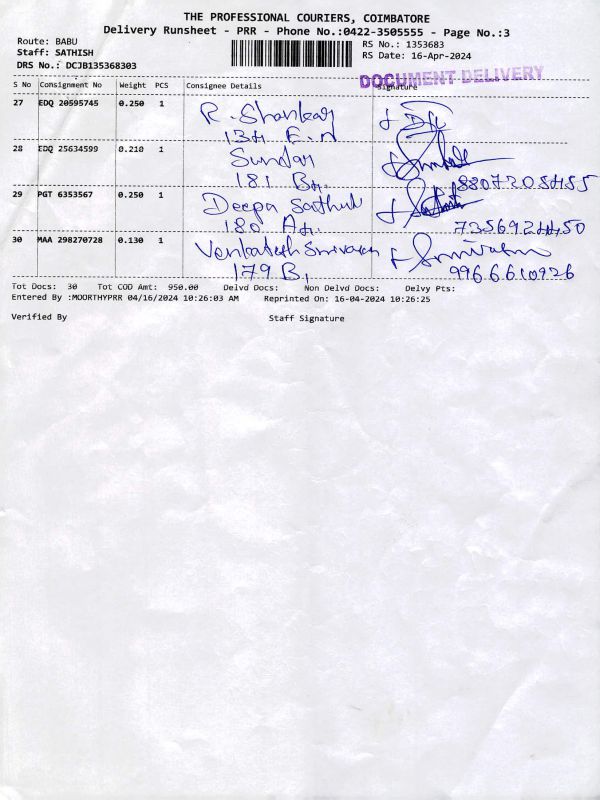 THE PROFESSIONAL COURIERS, COIMBATORE
Delivery Runsheet - PRR - Phone No.:0422-3505555 - Page No.:3
Route: BABU
Staff: SATHISH
DRS No.: DCJB135368303
RS No.: 1353683
RS Date: 16-Apr-2024
DOCUMENT DELIVERY
S No Consignment No Weight PCS Consignee Details Signature
27 EDQ 20595745 0.250 1 R. Shankar
134
28 EDQ 25634599 0.210 1 Sundar
181 8807205455
29 PGT 6353567 0.250 1 Deepa
180 7356924450
30 MAA 298270728 0.130 1 Venkatesh
179 B, 9966610926
Tot Docs: 30 Tot COD Amt: 950.00 Delvd Docs: Non Delvd Docs: Delvy Pts:
Entered By :MOORTHYPRR 04/16/2024 10:26:03 AM Reprinted On: 16-04-2024 10:26:25
Verified By Staff Signature